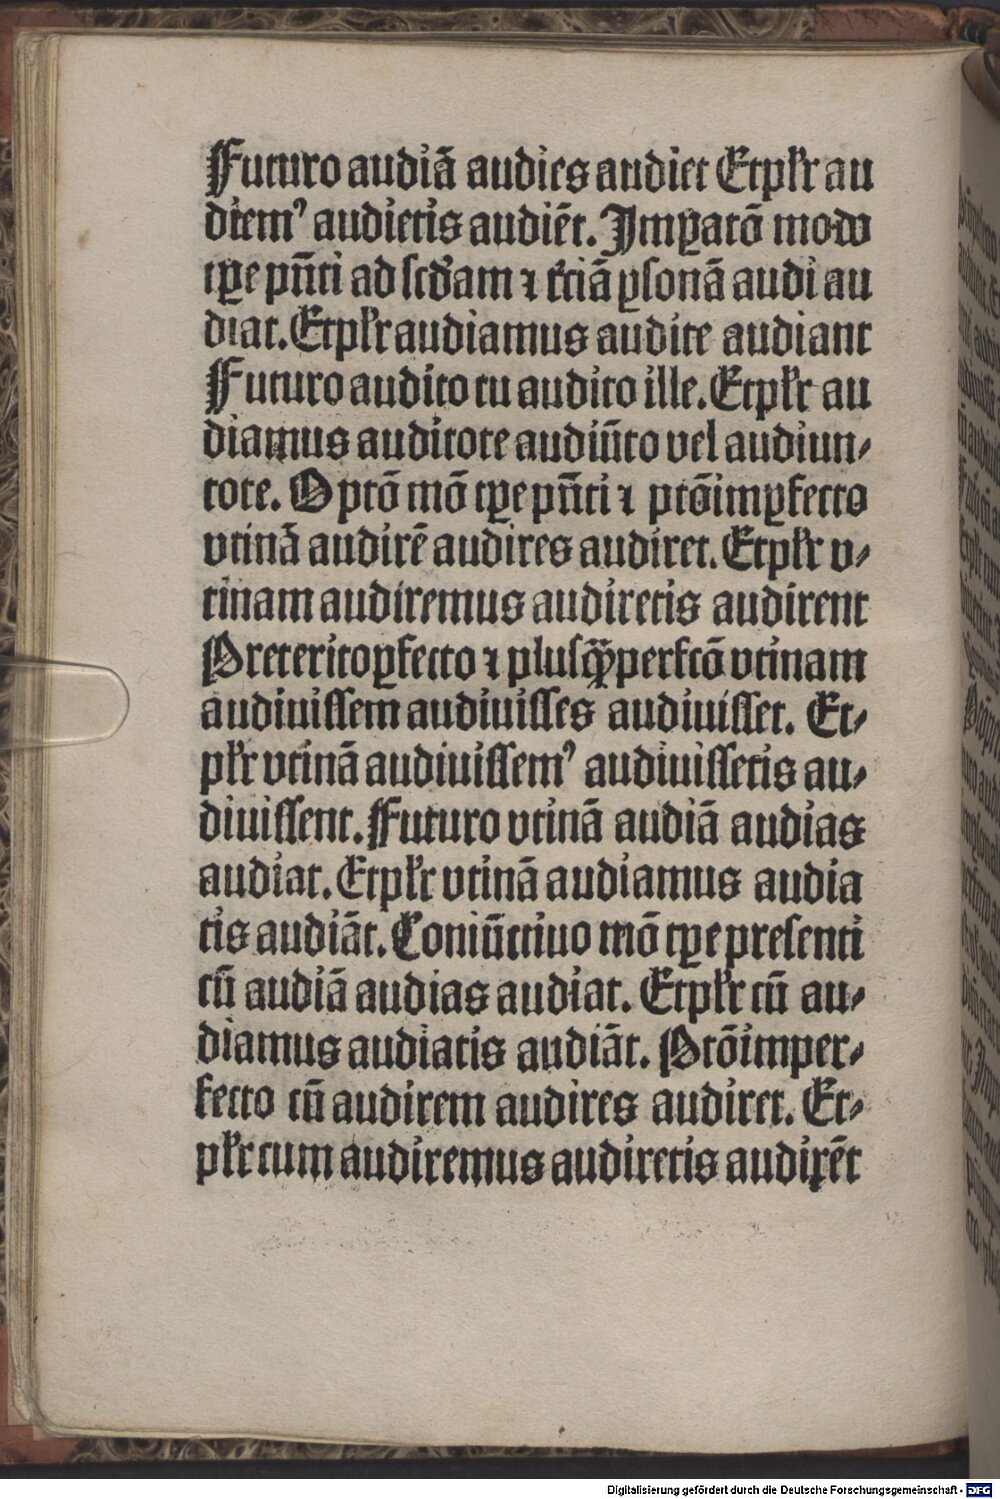 Futuro audiā audies audiet Etpꝉr au
diemꝰ audietis audiēt. Imꝑatō modo
tꝑe pn̄ti ad scd̄am ⁊ t̄ciā ꝑsonā audi au
diat. Etpꝉr audiamus audite audiant
Futuro audito tu audito ille. Etpꝉr au
diamus auditote audiūto vel audiun⸗
tote. Optō mō tꝑe pn̄ti ⁊ ptōimꝑfecto
vtinā audirē audires audiret. Etpꝉr v⸗
tinam audiremus audiretis audirent
Preteritoꝑfecto ⁊ plusq̄ꝫperfctō vtinam
audiuissem audiuisses audiuisset. Et⸗
pꝉr vtinā audiuissemꝰ audiuissetis au⸗
diuissent. Futuro vtinā audiā audias
audiat. Etpꝉr vtinā audiamus audia
tis audiāt. Coniūctiuo mō tꝑe presenti
cū audiā audias audiat. Etpꝉr cū au⸗
diamus audiatis audiāt. Ptōimper⸗
fecto cū audirem audires audiret. Et⸗
pꝉr cum audiremus audiretis audirēt
Digitalisierung gefördert durch die Deutsche Forschungsgemeinschaft - DFG